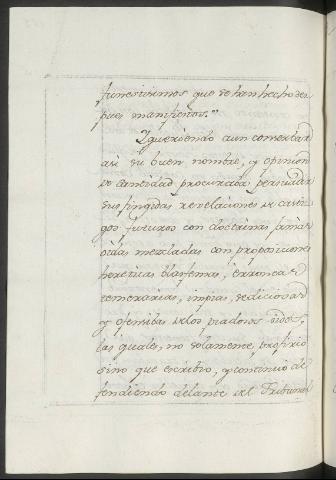 funestisimos que se han hecho des
pues manifiestos."
Y queriendo aun conservar
asi su buen nombre, y opinion
de santidad procuraba persuadir
sus fingidas revelaciones de casti
gos futuros con doctrinas jamas
oidas mezcladas con proposiciones
hereticas blasfemas, erroneas
temerarias, impias, sediciosas
y ofensibas de los piadosos oidos
las quales, no solamente profirio
sino que escribio, y continuó de
fendiendo delante del Tribunal